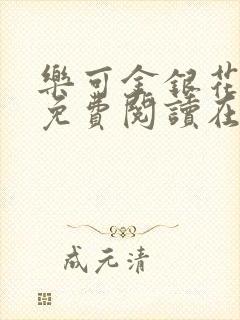 樂可金銀花
免費閱讀在
成元清